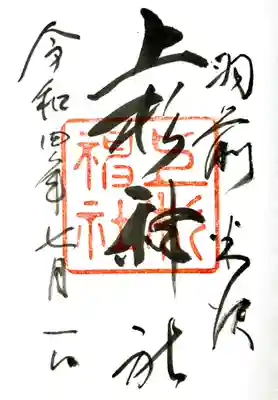 羽前米沢
上杉神社
上杉神社
令和四年七月一日